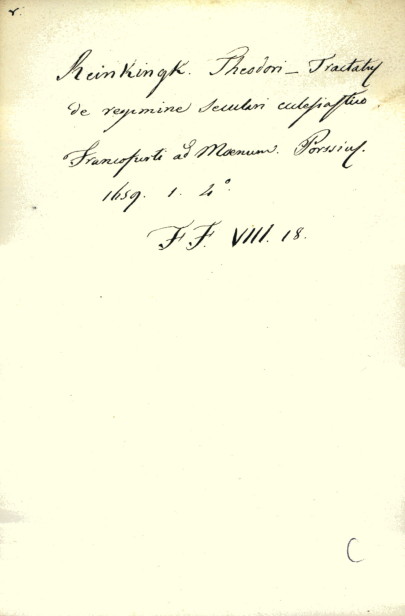 r.
Reinkingk. Theodori - Tractatus
de regimine seculari eclesiastico
Francofurti ad Moenum. Porssius.
1659. 1. 4°
F F. VIII. 18.
C